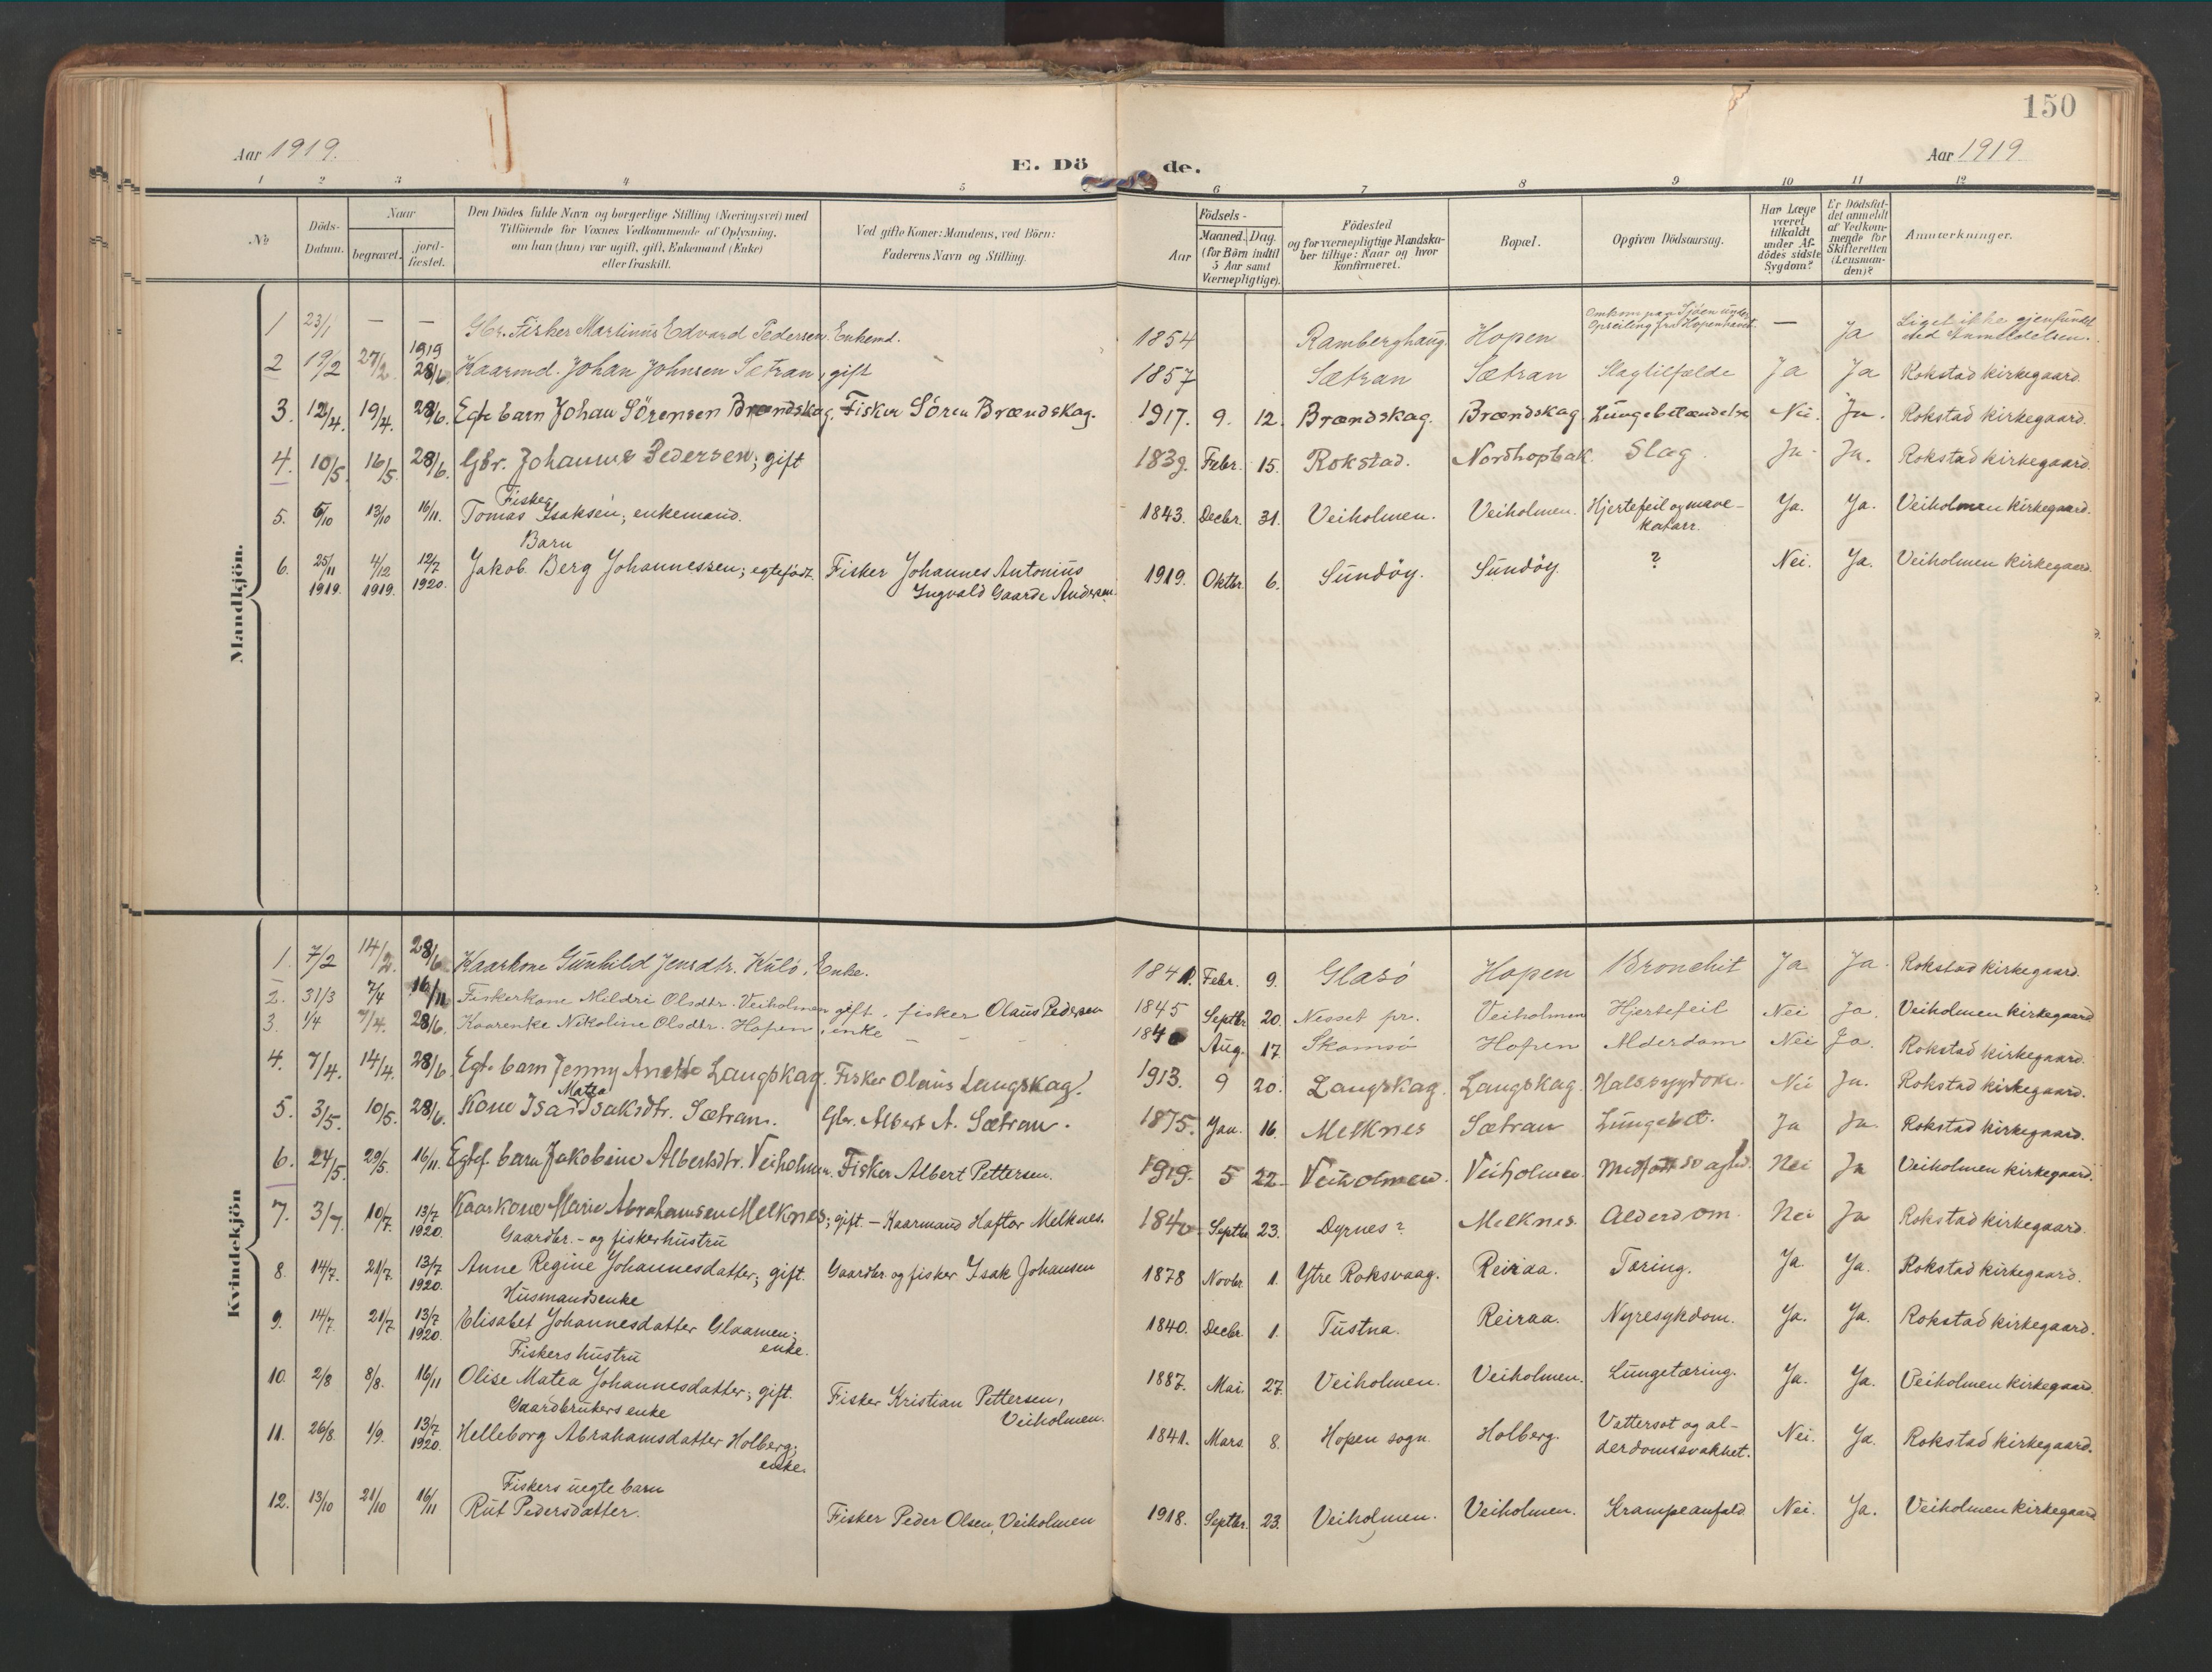 150
Aar 1919.
E. Dö de.
Aar 1919
1 2 3 4 5 6 7 8 9 10 11 12
No
Döds-Datum.
Naar
begravet.
jord-fæstet.
Den Dödes fulde Navn og borgerlige Stilling (Næringsvei) med
Tilföiende for Voxnes Vedkommende af Oplysning,
om han (hun) var ugift, gift, Enkemand (Enke)
eller fraskilt.
Ved gifte Koner: Mandens, ved Börn:
Faderens Navn og Stilling.
Födsels-
Aar
Maaned. Dag.
(for Börn indtil
5 Aar samt
Værnepligtige).
Födested
og for værnepligtige Mandska-
ber tillige: Naar og hvor
konfirmeret.
Bopæl.
Opgiven Dödsaarsag.
Har Læge
været
tilkaldt
under Af-
dödes sidste
Sygdom?
Er Dödsfal-
det anmeldt
af Vedkom-
mende for
Skifteretten
(Lensman-
den)?
Anmærkninger.
Mandkjön.
1 23/1 — — Gbr. Fisker Martinus Edvard Pedersen. Enkemd. 1854 Ramberghaug. Hopen Omkom paa Sjöen under Opseiling fra Hopenhavet. — Ja Liget ikke gjenfundet ved Anmeldelsen.
2 19/2 27/2. 1919 28/6. Kaarmd. Johan Johnsen Sætran, gift 1857 Sætran Sætran Slagtilfælde Ja Ja Rokstad kirkegaard.
3. 12/4. 19/4. 28/6. Egte barn Johan Sörensen Brændskag. Fisker Sören Brændskag. 1917. 9. 12. Brændskag. Brændskag. Lungebetændelse Nei. Ja. Rokstad kirkegaard.
4. 10/5. 16/5. 28/6. Gbr. Johannes Pedersen; gift 1839. Febr. 15. Rokstad. Nordhopbak. Slag. Ja Ja. Rokstad kirkegaard.
Fisker
5. 6/10 13/10 16/11. Tomas Isaksen; enkemand. 1843. Decbr. 31. Veiholmen. Veiholmen. Hjertefeil og mave-katarr. Ja. Ja. Veiholmen kirkegaard.
Barn
6. 25/11 1919. 4/12 1919. 12/7 1920. Jakob Berg Johannessen; egtefödt. Fisker Johannes Antonius Ingvald Gaarde Andersen. 1919. Oktbr. 6. Sundöy. Sundöy. ? Nei. Ja. Veiholmen kirkegaard.
Kvindekjön
1. 7/2 14/2. 28/6. Kaarkone Gunhild Jensdtr. Kulö, Enke. 1841. Febr. 9. Glasö Hopen Bronchit Ja Ja. Rokstad kirkegaard.
2. 31/3 7/4 16/11 Fiskerkone Mildri Olsdtr. Veiholmen gift. fisker Olaus Pedersen 1845 Septbr. 20. Nesset pr. Veiholmen Hjertefeil Nei Ja. Veiholmen kirkegaard
3. 1/4 7/4. 28/6. Kaarenke Nikoline Olsdtr. Hopen, enke — — — Aug. 17 Skomsö Hopen Alderdom Nei Ja. Rokstad kirkegaard.
4. 7/4. 14/4. 28/6. Egte barn Jenny Anette Langskag. Fisker Olaus Langskag. 1913. 9 20. Langskag. Langskag. Halssygdom. Nei Ja. Rokstad kirkegaard.
Matea
5. 3/5. 10/5. 28/6. Kone Isaksdtr. Sætran. Gbr. Albert A. Sætran. 1875. Jan. 16. Melknes Sætran Lungebet. Ja Ja. Rokstad kirkegaard.
6. 24/5. 29/5. 16/11. Egtef. barn Jakobine Albertsdtr. Veiholmen. Fisker Albert Pettersen. 1919. 5 22. Veiholmen. Veiholmen. Medfödt svaghed. Nei Ja Veiholmen kirkegaard.
7. 3/7. 10/7. 13/7 1920. Kaarkone Marie Abrahamsen Melknes; gift. — Kaarmand Haftor Melknes. 1840. Septbr. 23. Dyrnes? Melknes. Alderdom. Nei Ja Rokstad kirkegaard.
Gaardbr.- og fiskerhustru
8. 14/7. 21/7. 13/7 1920. Anne Regine Johannesdatter; gift. Gaardbr. og fisker Isak Johansen 1878 Novbr. 1. Ytre Roksvaag. Reiraa. Tæring. Ja. Ja. Rokstad kirkegaard.
Husmandsenke
9. 14/7. 21/7. 13/7 1920. Elisabet Johannesdatter Glaamen; enke. 1840. Decbr. 1. Tustna. Reiraa. Nyresykdom. Ja. Ja. Rokstad kirkegaard.
Fiskers hustru
10. 2/8 8/8. 16/11 Olise Matea Johannesdatter; gift. Fisker Kristian Pettersen, Veiholmen. 1887. Mai. 27. Veiholmen. Veiholmen. Lungetæring. Ja. Ja. Veiholmen kirkegaard.
Gaardbrukers enke
11. 26/8. 1/9. 13/7 1920. Helleborg Abrahamsdatter Holberg; enke. 1841. Mars. 8. Hopen sogn. Holberg. Vattersot og al-derdomssvakhet. Nei. Ja. Rokstad kirkegaard.
Fiskers uegte barn
12. 13/10 21/10 16/11 Rut Pedersdatter. Fisker Peder Olsen, Veiholmen 1918. Septbr. 23. Veiholmen. Veiholmen. Krampeanfald. Nei. Ja. Veiholmen kirkegaard